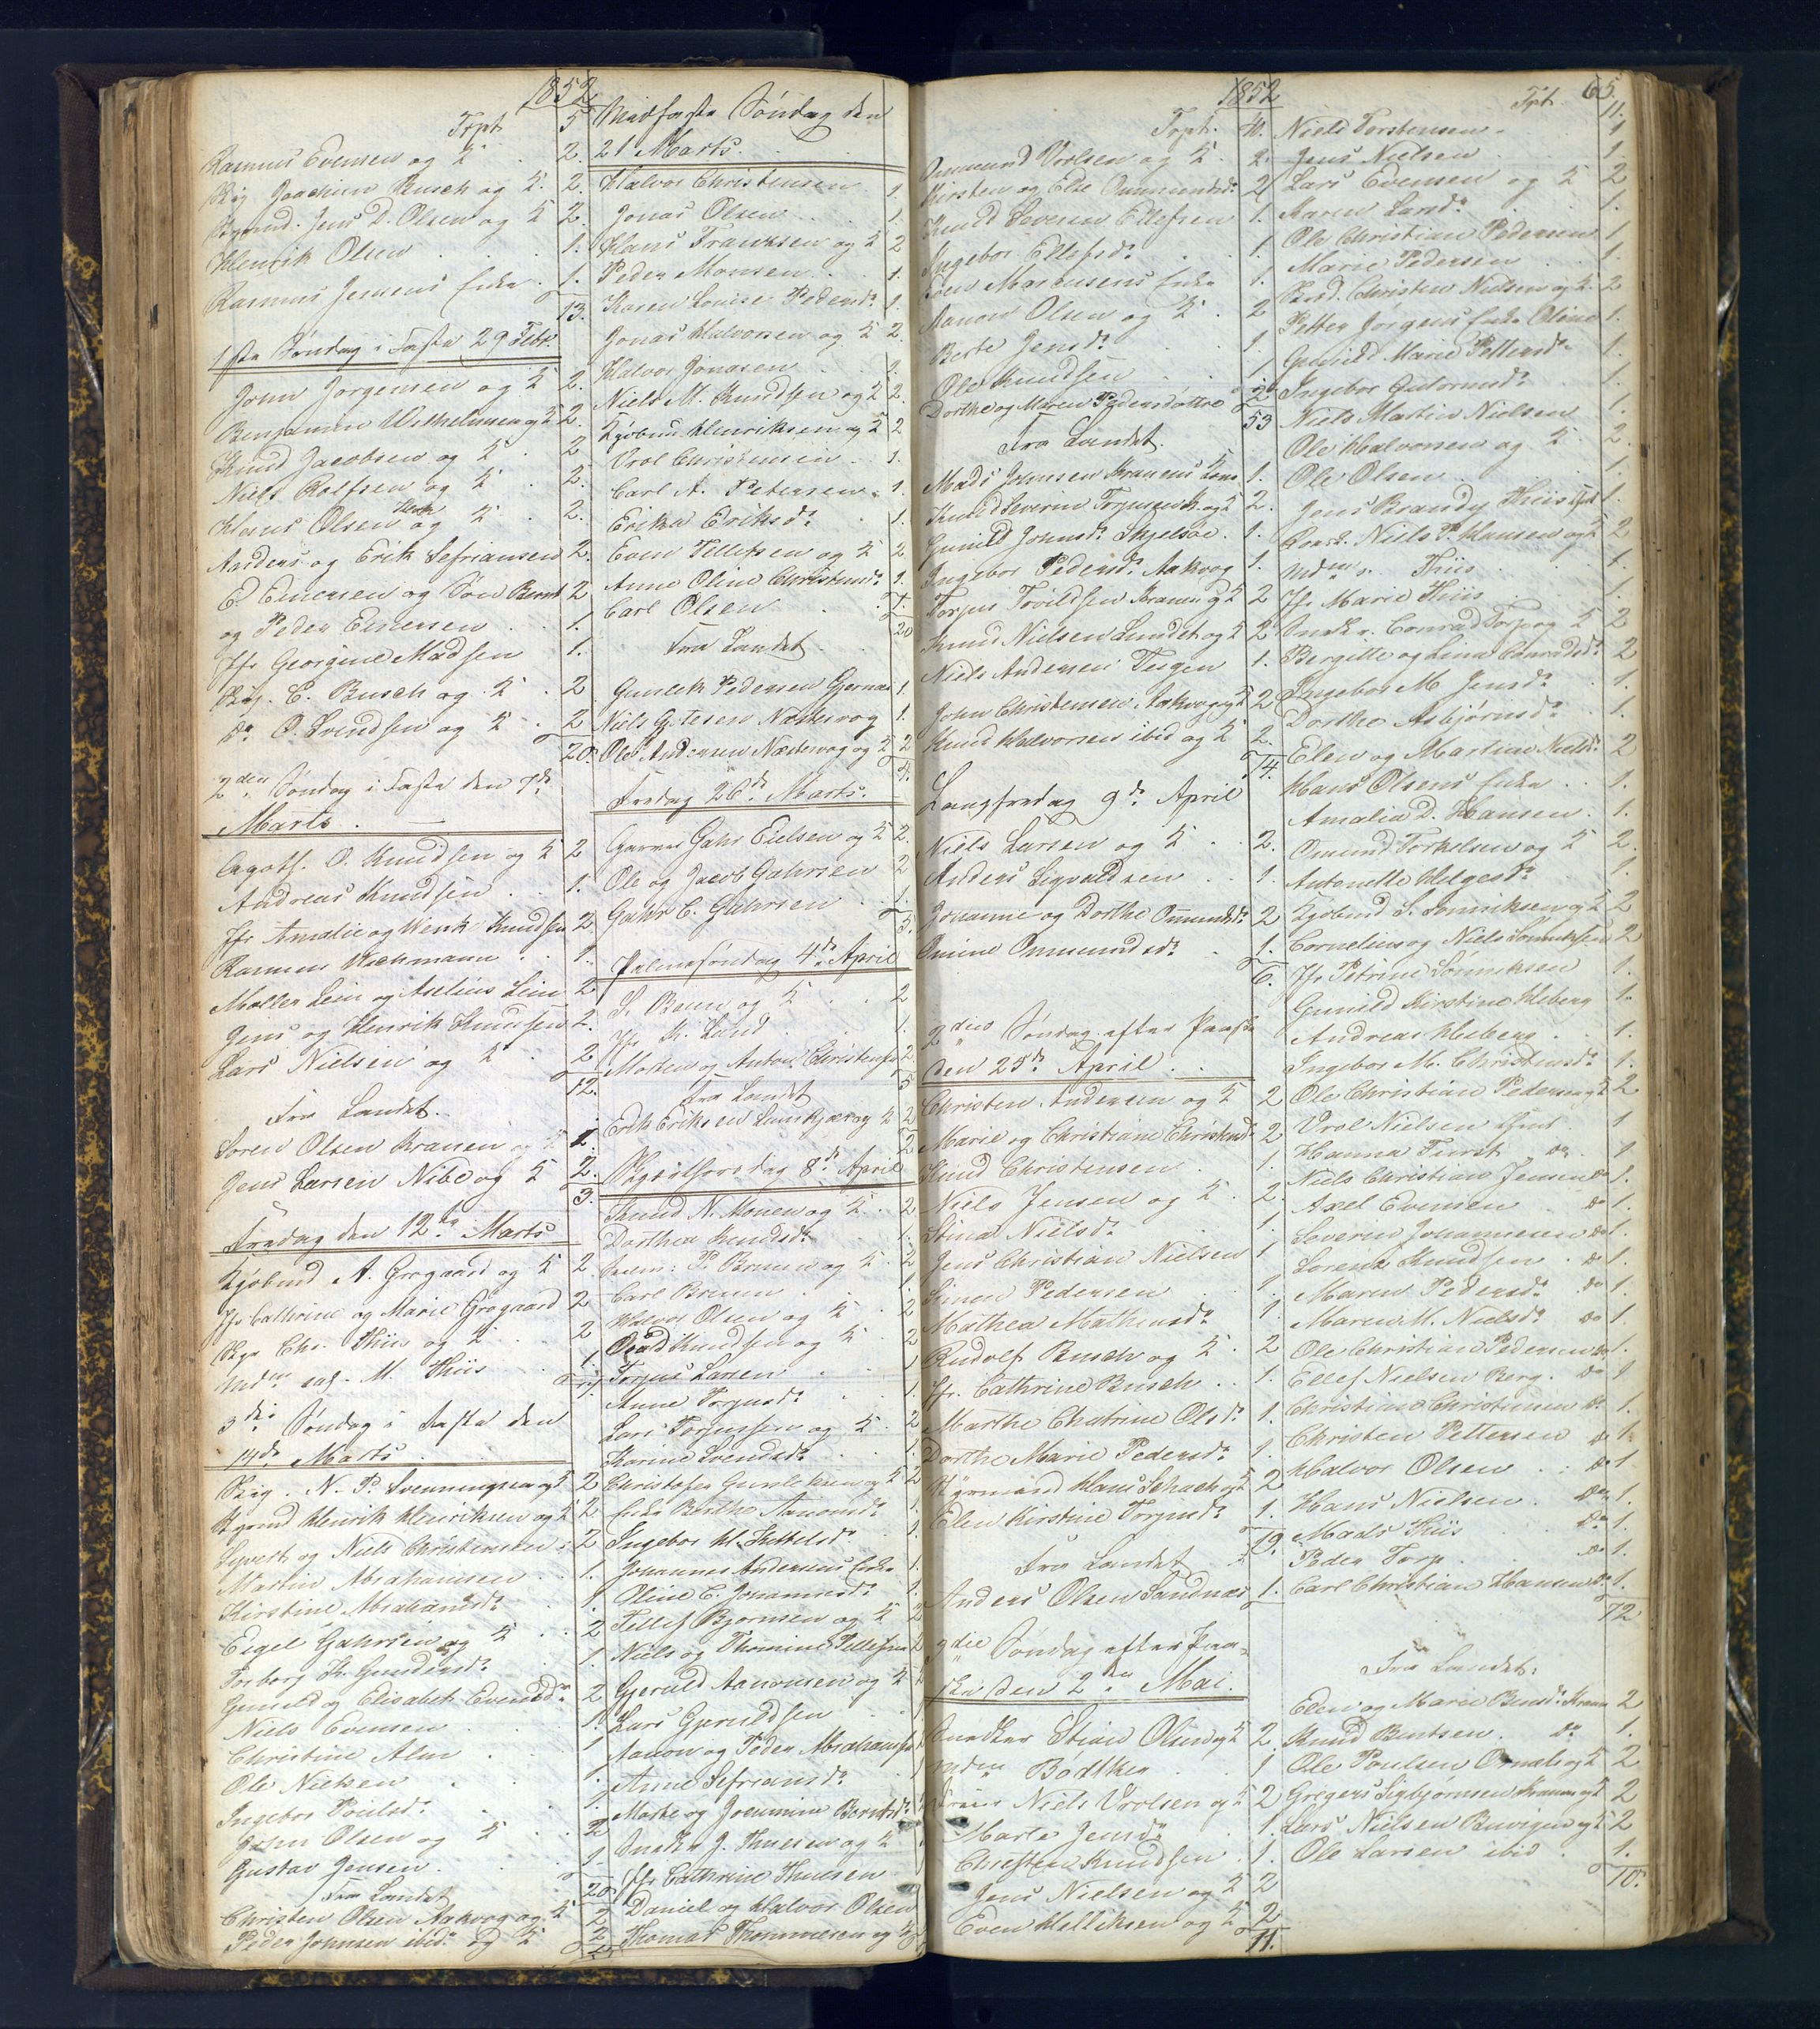 1852
Trpt. 5
Rasmus Evensen og K 2.
Skip. Joachim Busch og K. 2.
Styrmd. Jens D. Olsen og K 2.
Henrik Olsen 1.
Rasmus Jensens Enke 1.
13.
1ste Søndag i Faste 29 Febr.
John Jørgensen og K 2.
Benjamin Wilhelmsen og K 2.
Knud Jacobsen og K 2
Niels Rolfsen og K 2.
Hans Olsen og K 2.
Anders og Erik Sefriansen 2.
E. Einersen og Søn Bernt 2
og Peder Einersen 1.
Jfr Georgine Madsen 1.
Skip. C. Busch og K 2
do O. Svendsen og K 2
20.
2den Søndag i Faste den 7de
Marts
Agotf. O. Knudsen og K 2
Andreas Knudsen 1.
Jfr Amalie og Knudsen 2.
Rasmus Wachmann 1.
Møller Lein og Aselius Lein 2
Jens og Henrik Knudsen 2.
Lars Nielsen og K 2
12.
Fra Landet.
Søren Olsen Kranen og
Jens Larsen Nibe og K 2.
3.
Fredag den 12te Marts
Kjøbmd A. Grøgaard og K 2.
Jfr Cathrine og Marie Grøgaard 2
Skpr Chr. Thiis og K 2
Mdm sal. M. Thiis 1.
7.
3die Søndag i Faste den
14de Marts
Skip. N. P. Svenningsen og K 2
Styrmd Henrik Henriksen og K 2
Syvert og Niels Christensen 2
Martin Abrahamsen 1.
Kirstine Abrahamsdr 1.
Eigel Gahrsen og K 2
Torborg K. Gundersdr 1
Gunild og Elisabet Evensdr 2
Niels Evensen 1.
Christine Alm 1
Ole Nielsen 1.
Ingebor Poulsdr 1.
Olsen og K 2
Gustav Jensen 1.
20
Fra Landet
Christen Olsen Aakvog og K 2
Peder Johnsen ibid. og K 2
4
Midfaste Søndag den
21 Marts.
Halvor Christensen 1.
Jonas Olsen 1.
Hans Frantzen og K 2
Peder Monsen 1.
Karen Lovise Pedersdr 1.
Jonas Halvorsen og K 2.
Halvor Jonasen 1.
Niels M. Knudsen og K 2.
Kjøbmd Henriksen og K 2
Vrol Christensen 1.
Carl A. Petersen 1.
Erika Eriksdr 1.
Even Tellefsen og K 2
Anne Oline Christensdr 1.
Carl Olsen 1.
20
Fra Landet
Gunlek Pedersen Gjernæs 1.
Niels G. Tesen Næstevog 1.
Ole Andersen Næstevog og K 2
4.
Fredag 26de Marts.
Garver Gahr Eielsen og K 2.
Ole og Jacob Gahrsen 2
Gahr C. Gahrsen 1.
5.
Palmesøndag 4de April
S. Bruun og K 2
Jfr K. Lund 1.
Morten og Anton Christensen 2.
5
Fra Landet
Erik Eriksen Lunskjær og K 2
2
Skjærthorsdag 8de April
Knud N. Monen og K 2
Dorthea Knudsdr 1.
P. Bruun og K 2
Carl Bruun 1
Halvor Olsen og K 2
Knudsen og K 2
Torjus Larsen 1
Anne Torjusdr 1.
Lars Torjussen og K 2
Karine Svendsdr 1.
Christofer Gunleksen og K 2
Enke Berthe Aanonsdr 1.
Ingebor H. Kittelsdr 1.
Johannes Andersens Enke 1.
Oline E. Johannesdr 1.
Tellef Bjørnsen og K 2
Niels og Thomine Tellefsen 2
Gjeruld Aanonsen og K 2
Lars Gjeruldsen 1
Aanon og Peder Abrahamsen
Anne Sefriansdr 1
Marthe og Joemine Berntsdr
Snedker J. Knudsen og K
Jfr Cathrine Knudsen
Daniel og Halvor Olsen
Thomas Thommesen og K
1852
Trpt. 40.
Ommund Vrolsen og K 2.
Kirsten og Else Ommundsdr 2
Knud Severin Ellefsen 1.
Ingebor Ellefsdr 1
Even Mortensens Enke 1.
Aanon Olsen og K 2
Berte Jensdr 1.
Ole Knudsen 1
Dorthe og Maren Pedersdøttre 2
53
Fra Landet.
Mads Johnsen Kranens 1.
Knud Severin Torjussen og K 2.
Gunild Johnsdr Skjelsøe 1.
Ingebor Pedersdr Aakvog 1.
Torjus Troildsen Kranen og K 2
Knud Nielsen Lundet og K 2
Niels Andersen Tesgen 1.
John Christensen Aakvog og K 2
Knud Halvorsen ibid og K 2.
14.
Langfredag 9de April
Niels Larsen og K 2.
Anders Sigvaldsen 1.
Johanne og Dorthe Ommundsdr 2
Omine Ommundsdr 1.
6.
2den Søndag efter Paaske
den 25de April
Christen Andersen og K 2
Marie og Christiane Christensdr 2
Knud Christensen 1.
Niels Jensen og K 2.
Stina Nielsdr 1.
Jens Christian Nielsen 1
Simon Pedersen 1.
Mathea Mathiasdr 1.
Rudolf Busch og K 2
Jfr. Cathrine Busch 1.
Marthe Chatrine Olsdr 1.
Dorthe Marie Pedersdr 1.
Styrmand Hans Schach og K 2
Elen Kirstine Torjusdr 1.
19.
Fra Landet
Anders Olsen Sandnæs 1.
3die Søndag efter Paa-
ske den 2den Mai.
Snedker Stian Olsen og K 2.
Mdm Bødtker 1
Niels Vrolsen og K 2
Marte Jensdr 1.
Christen Knudsen 1.
Jens Nielsen og K 2
Even Kittilsen og K 2
11.
65.
Trpt. 11.
Niels Torstensen 1
Jens Nielsen 1.
Lars Evensen og K 2
Maren Larsdr 1.
Ole Christian Pedersen 1
Marie Pedersen 1.
Christen Nielsen og K 2
Petter Jørgens Enke Oline 1.
Gunild Marie Pettersdr 1.
Ingebor Gutormsdr 1.
Niels Martin Nielsen 1.
Ole Halvorsen og K 2.
Ole Olsen 1.
Jens Brandy Thiis 1.
Niels P. Hansen og K 2
Mdm s. Thiis 1.
Jfr Marie Thiis 1.
Snedkr. Conrad Torp og K 2
Bergitte og Lina Conradsdr 2
Ingebor M. Jensdr 1.
Dorthe Asbjørnsdr 1.
Elen og Martine Nielsdr 2
Hans Olsens Enke 1.
Amalia D. Hansen 1.
Omund Torkelsen og K 2.
Antonette Helgesdr 1.
Kjøbmd S. Sønniksen og K 2
Cornelius og Niels Sønniksen 2
Jfr Petrine Sønniksen 1.
Gunild Kirstine Heberg 1.
Andreas Heberg 1.
Ingebor M. Christensdr 1.
Ole Christian Pedersen og K 2.
Vrol Nielsen 1
Hanna Furst do 1
Niels Christian Jensen do 1.
Axel Evensen do 1.
Severin Johannesen do 1.
Sørenk Knudsen do 1.
Maren Pedersdr do 1.
Maren M. Nielsdr do 1.
Ole Christian Pedersen do 1.
Ellef Nielsen Berg. do 1
Christian Christensen do 1.
Christen Pettersen do 1.
Halvor Olsen do 1
Hans Nielsen do 1.
Mads Thiis do 1.
Peder Torp do 1.
Carl Christian Hansen do 1.
72
Fra Landet:
Elen og Marie Bentsdr Kranen 2
Knud Bentsen do 1.
Ole Poulsen Omdals og K 2
Gregers Sigbjørnsen Kranen og K 2
Lars Nielsen Buvigen og K 2
Ole Larsen ibid 1.
10.